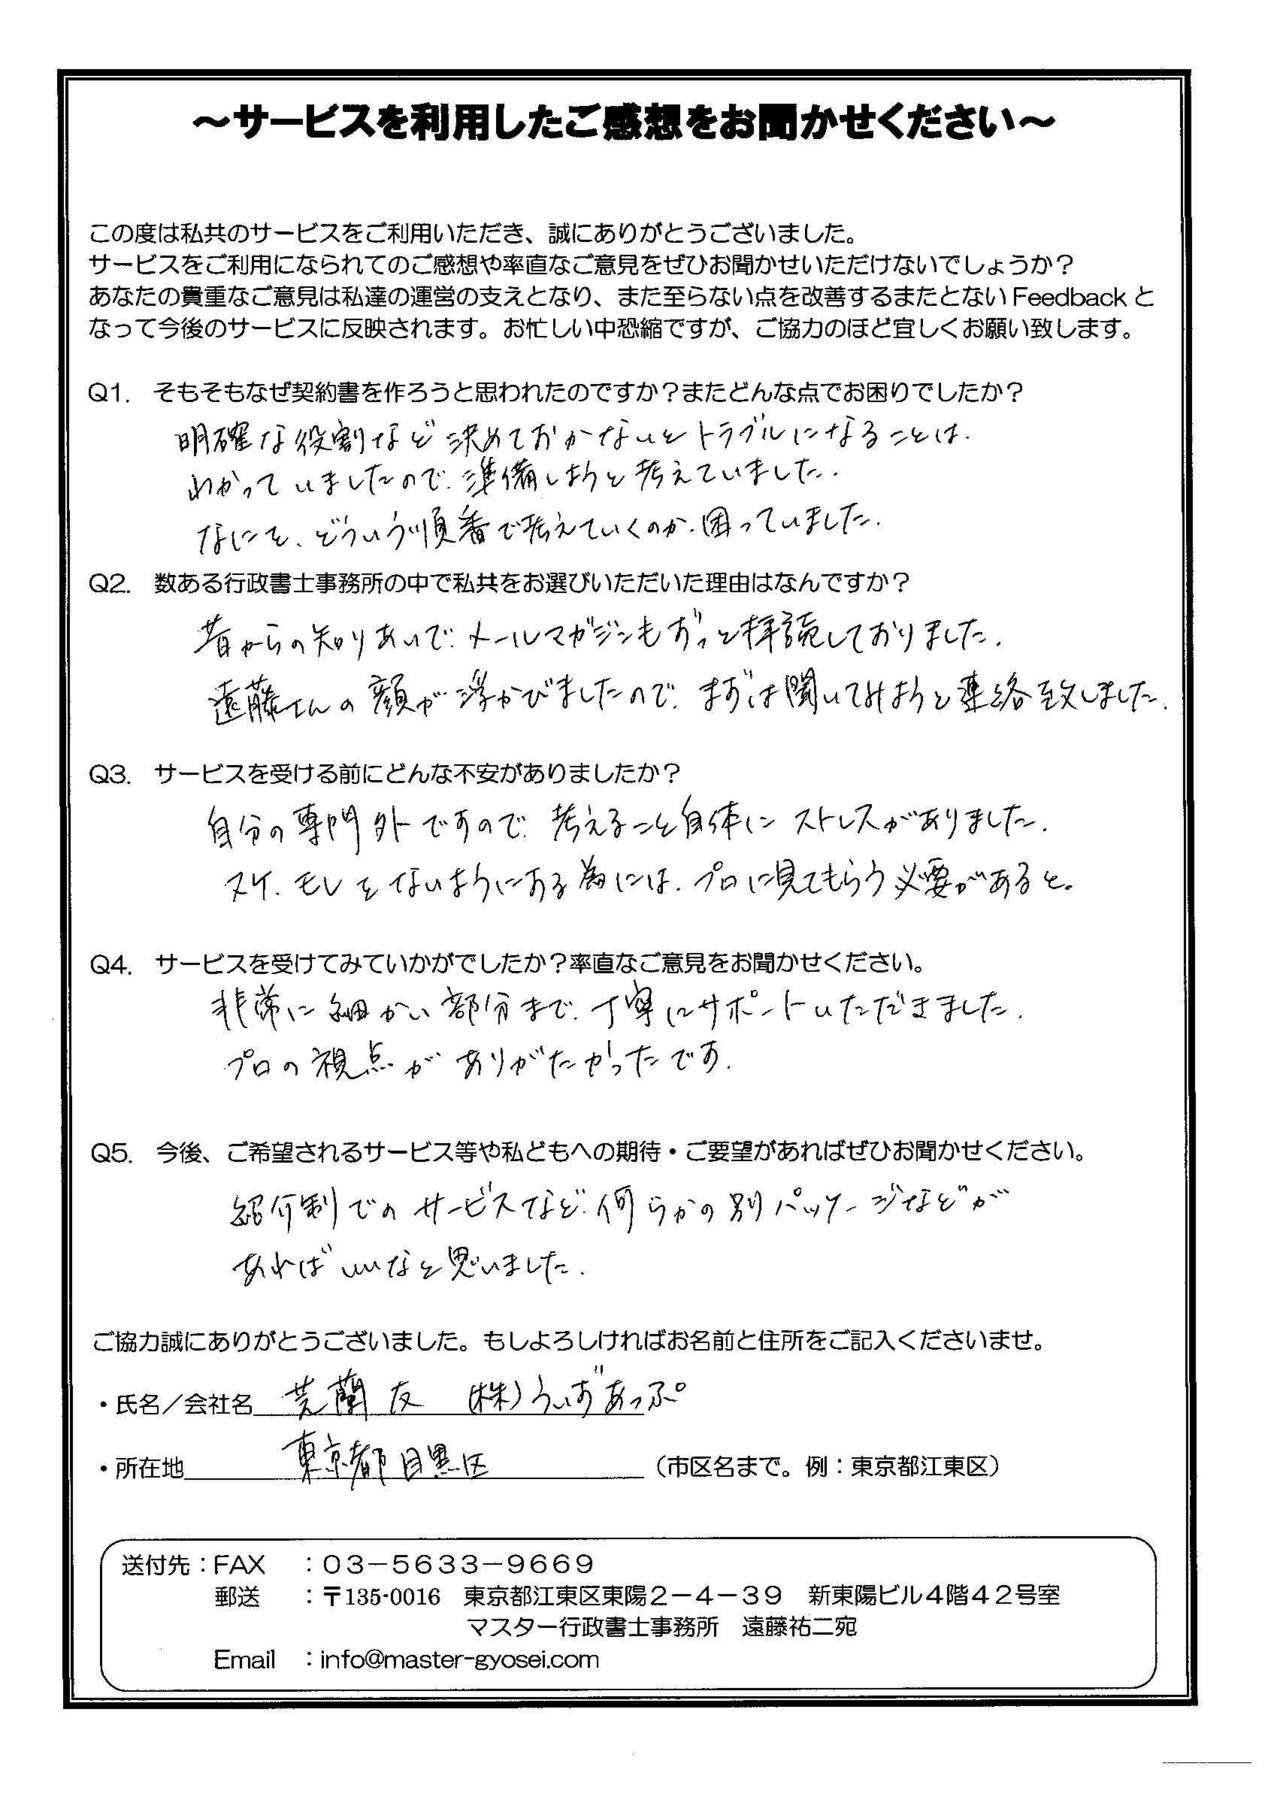 ～サービスを利用したご感想をお聞かせください～
この度は私共のサービスをご利用いただき、誠にありがとうございました。
サービスをご利用になられてのご感想や率直なご意見をぜひお聞かせいただけないでしょうか？
あなたの貴重なご意見は私達の運営の支えとなり、また至らない点を改善するまたとない Feedback と
なって今後のサービスに反映されます。お忙しい中恐縮ですが、ご協力のほど宜しくお願い致します。
Q1. そもそもなぜ契約書を作ろうと思われたのですか？またどんな点でお困りでしたか？
明確な役割など決めておかないとトラブルになることは、
わかっていましたので、準備しようと考えていました。
なにを、どういう順番で考えていくのか、困っていました。
Q2. 数ある行政書士事務所の中で私共をお選びいただいた理由はなんですか？
昔からの知りあいで、メールマガジンもずっと拝読しておりました。
遠藤さんの顔が浮かびましたので、まずは聞いてみようと連絡致しました。
Q3. サービスを受ける前にどんな不安がありましたか？
自分の専門外ですので、考えること自体にストレスがありました。
ヌケ、モレをないようにする為には、プロに見てもらう必要があると。
Q4. サービスを受けてみていかがでしたか？率直なご意見をお聞かせください。
非常に細かい部分まで、丁寧にサポートいただきました。
プロの視点がありがたかったです。
Q5. 今後、ご希望されるサービス等や私どもへの期待・ご要望があればぜひお聞かせください。
紹介制でのサービスなど、何らかの別パッケージなどが
あればいいなと思いました。
ご協力誠にありがとうございました。もしよろしければお名前と住所をご記入くださいませ。
・氏名／会社名 蘭友 (株)うぃずあっぷ
・所在地 東京都目黒区 （市区名まで。例：東京都江東区）
送付先：FAX ：０３－５６３３－９６６９
郵送 ：〒135-0016 東京都江東区東陽２－４－３９ 新東陽ビル４階４２号室
マスター行政書士事務所 遠藤祐二宛
Email ：info@master-gyosei.com